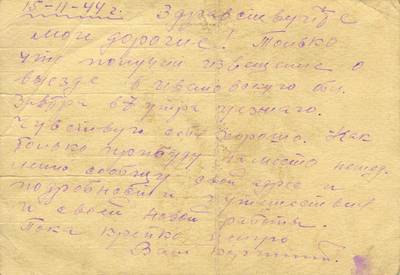 15-II-44 г. Здравствуйте
мои дорогие! Только
что получил извещение о
выезде в Ивановскую обл.
Завтра в 7 утра уезжаю.
Чувствую себя хорошо. Как
только прибуду на место немед
ленно сообщу свой адрес и
подробности путешествия
и своей новой работы.
Пока крепко целую
Ваш